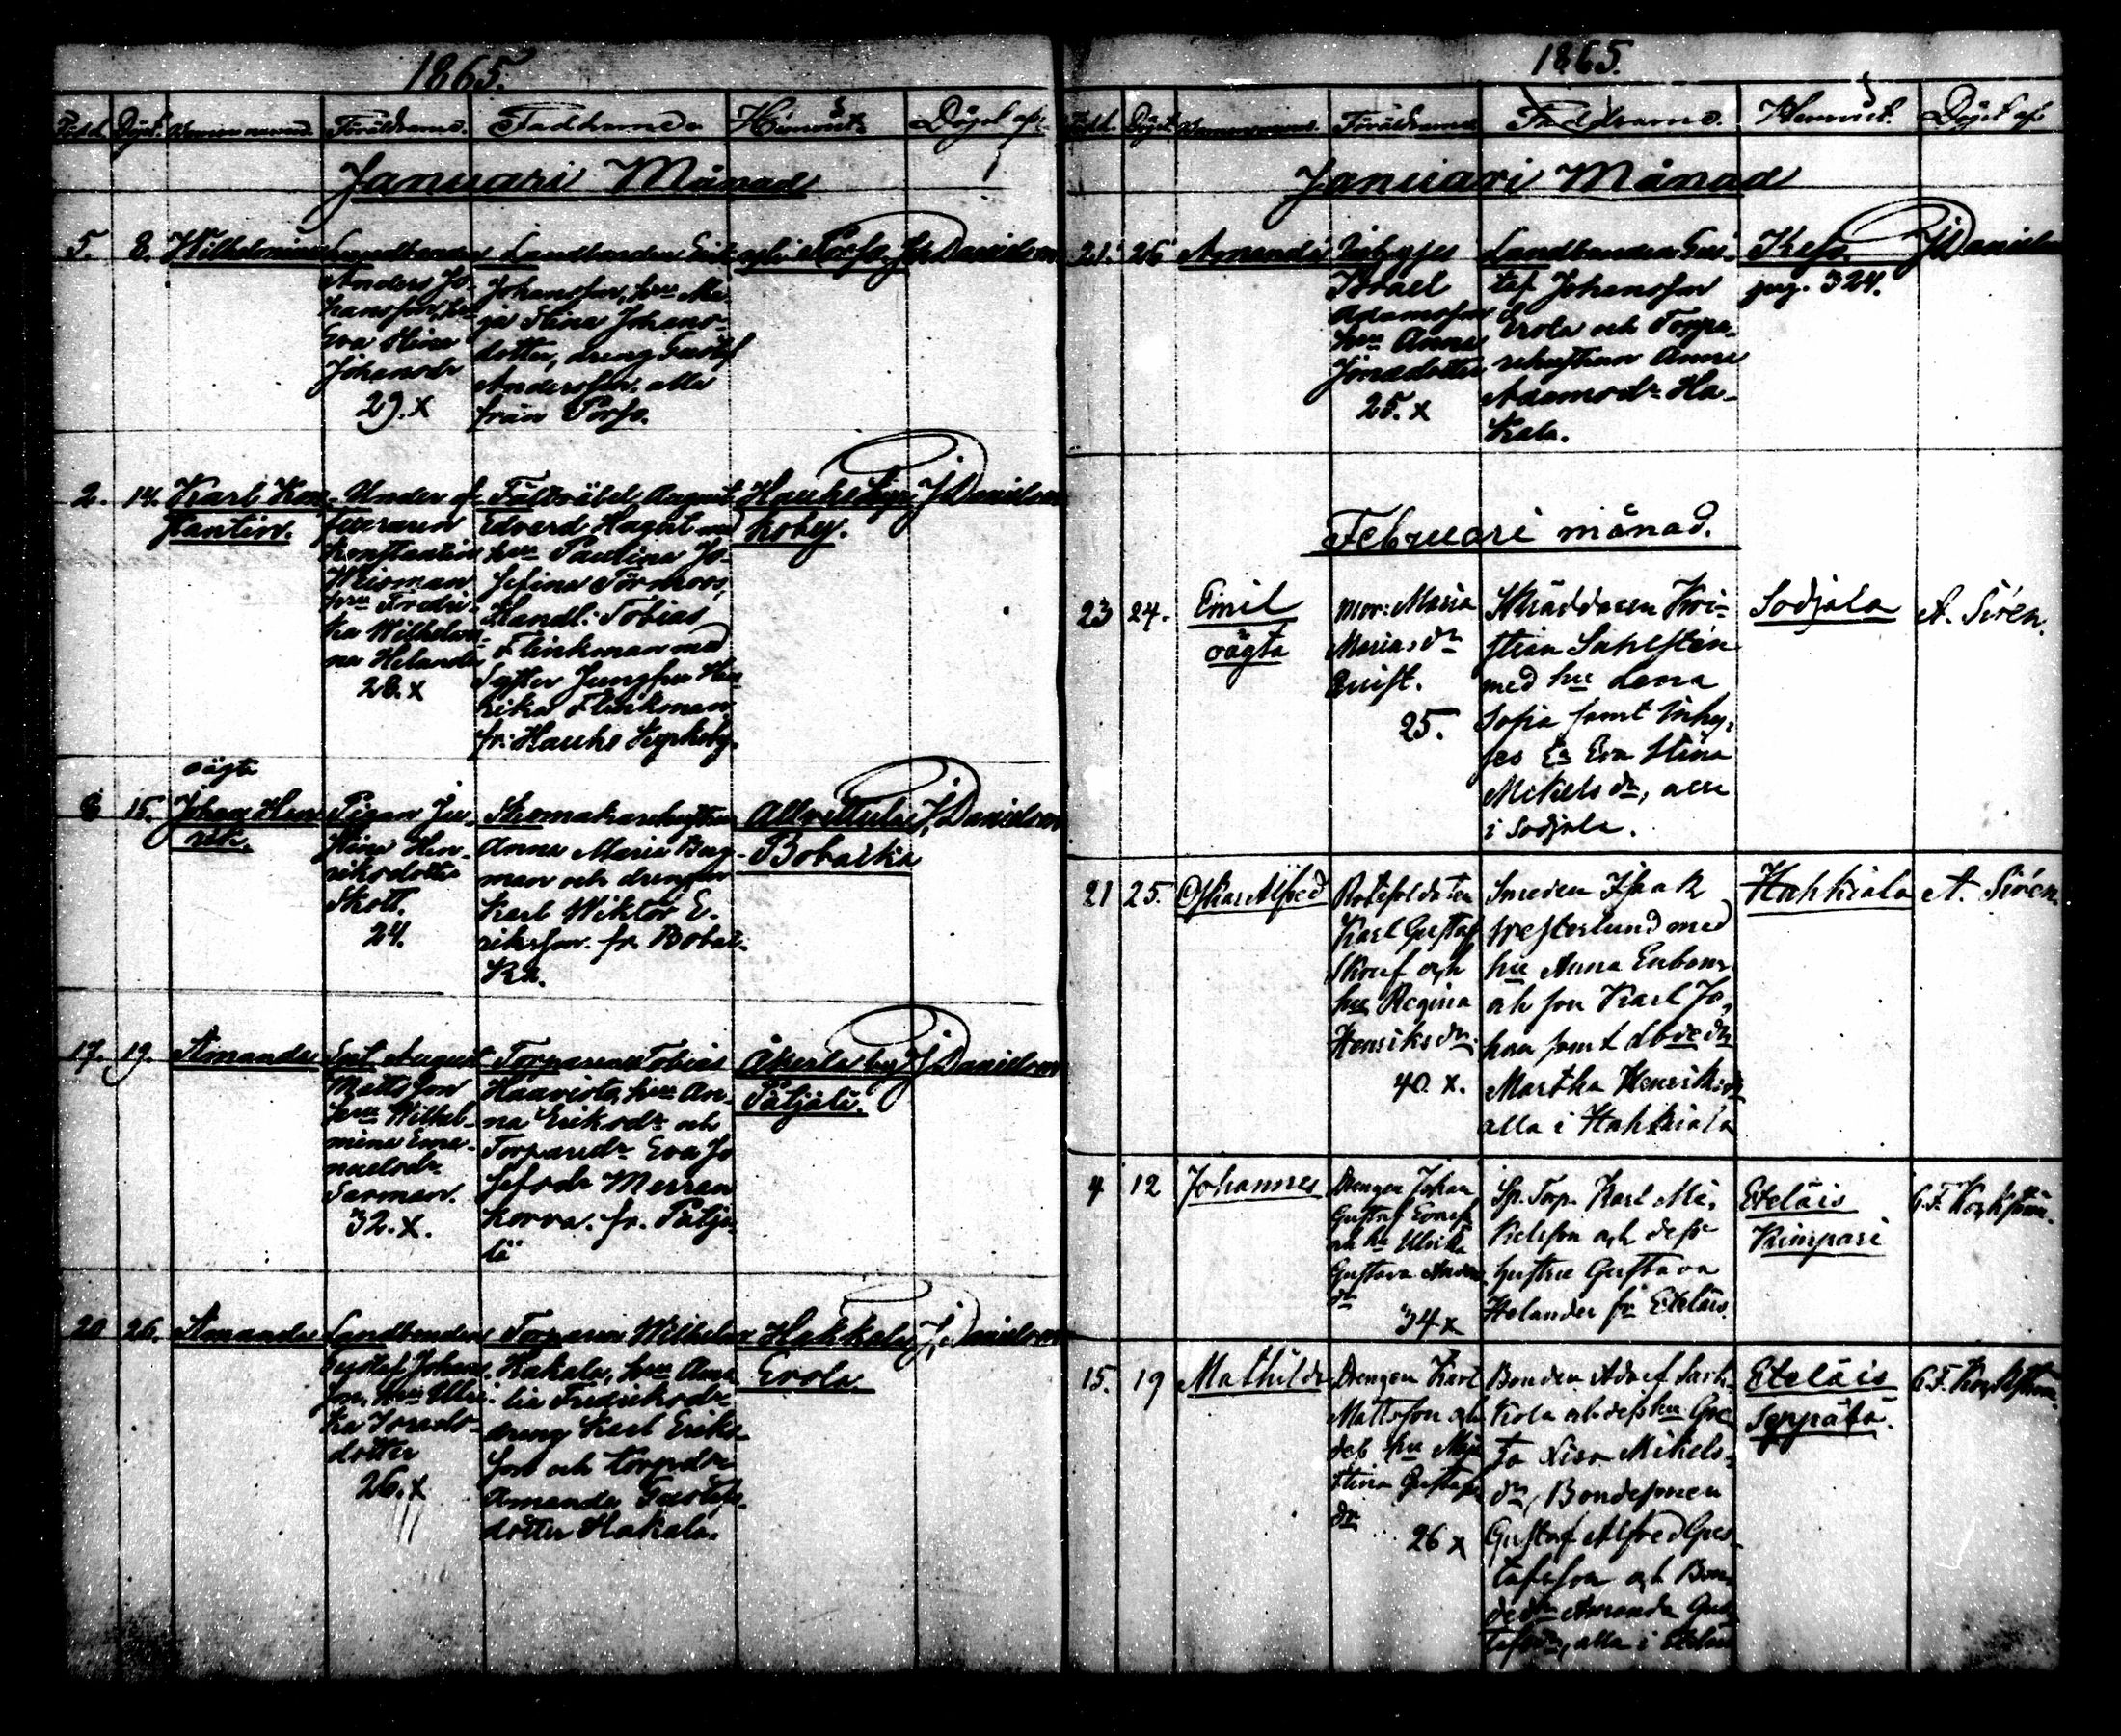 1865.
Född. Döpt. Barnens namn. Föräldrarne. Faddrarne Hemvist. Döpt af:
Januari Månad
5. 8. Wilhelmina
Landbonden
Anders Jo-
hansson, hu
Eva Stina
Johansdr
29. x
Landbonden
Johansson, hru Ma-
ja Stina Johans-
dotter, dreng Gustaf
Andersson, alla
från Porfo.
J. Danielson
2. 14. Karl Kon-
stantin.
Under of-
ficeraren
Konstantin
Weisman
hru Fredri-
ka Wilhelmi-
na Helander
28. x
Fältväbel August
Edvard Hagål med
hru Paulina Jo-
sefina Törnroos,
Handl: Tobias
Flinkman med
Syster Jungfru Hen-
rika Flinkman
fr: Hauho Kyrkoby.
Hauho Kyr-
koby.
J. Danielson
oägta
8 15. Johan Hen-
rik.
Pigan Ju-
stina Hen-
riksdotter
Skott.
24.
Skomakarehustrun
Anna Maria Berg-
man och drengen
Karl Wiktor E-
riksson. fr. Bobai-
ka.
Bobaika
J. Danielson
17. 19. Amanda
August
Mattsson
hru Wilhel-
mina Ema-
nuelsdr
Sarman.
32. x.
Torparen Tobias
Haavisto, hru An-
na Eriksdr och
Torparedr Eva Jo
sefsdr Messan
korva. fr. Päljä-
lä
Åkerla by
Päljälä.
J. Danielson
20 26. Amanda
Landbonden
Gustaf Johans-
son, hru Ulri-
ka Josefs-
dotter
26. x
Torparen Wilhelm
Hakala, hru Ama
lia Fredriksdr
dreng Karl Eriks-
son och torpdr
Amanda Gustafs-
dotter Hakala.
Hakkala
Erola.
J. Danielson
1865.
Född. Döpt. Barnens namn. Föräldrarne Faddrarne. Hemvist. Döpt af:
Januari Månad
21. 26 Amanda
Inhyses
Israel
Adamsson
hru Anna
Jonadotter
25. x
Landbonden Gus-
taf Johansson
Erola och Torpa-
rehustrun Anna
Adamsdr Ha-
kala.
pag. 324.
J. Danielson
Februari månad.
23 24. Emil
oägta
Mor: Maria
Mariasdr
Quist.
25.
Skräddaren Kri-
stian Sahlstén
med hu Lena
Sofia samt Inhy-
ses Ea Eva Stina
Mikelsdr, alla
i Sodjala.
Sodjala
A. Sirén.
21 25. Oskar Alfred
Rotesoldaten
Karl Gustaf
Skruf och
hu Regina
Henriksdr.
40. x.
Smeden Isaak
Westerlund med
hu Anna
och son Karl Jo-
han samt
Martha Henriksdr
alla i Hahkiala
Hahkiala
A. Sirén.
4 12 Johannes
Drengen Johan
Gustaf
och hu Ulrika
Gustava Anders
dr
34 x
Sp. Torp. Karl Mi-
kelsson och dess
hustru Gustava
Helander fr Eteläis.
Eteläis
Kimpari
15. 19 Mathilda
Drengen Karl
Mattsson och
dess hu Maja
Stina Gustafs
dr
26 x
Bonden Adolf
och dess hu Gre
ta Lisa Mikels-
dr, Bondesonen
Gustaf Alfred Gus-
tafsson och Bon-
dedr Amanda Gus-
tafsdr, alla i Eteläis
Eteläis
Seppälä.